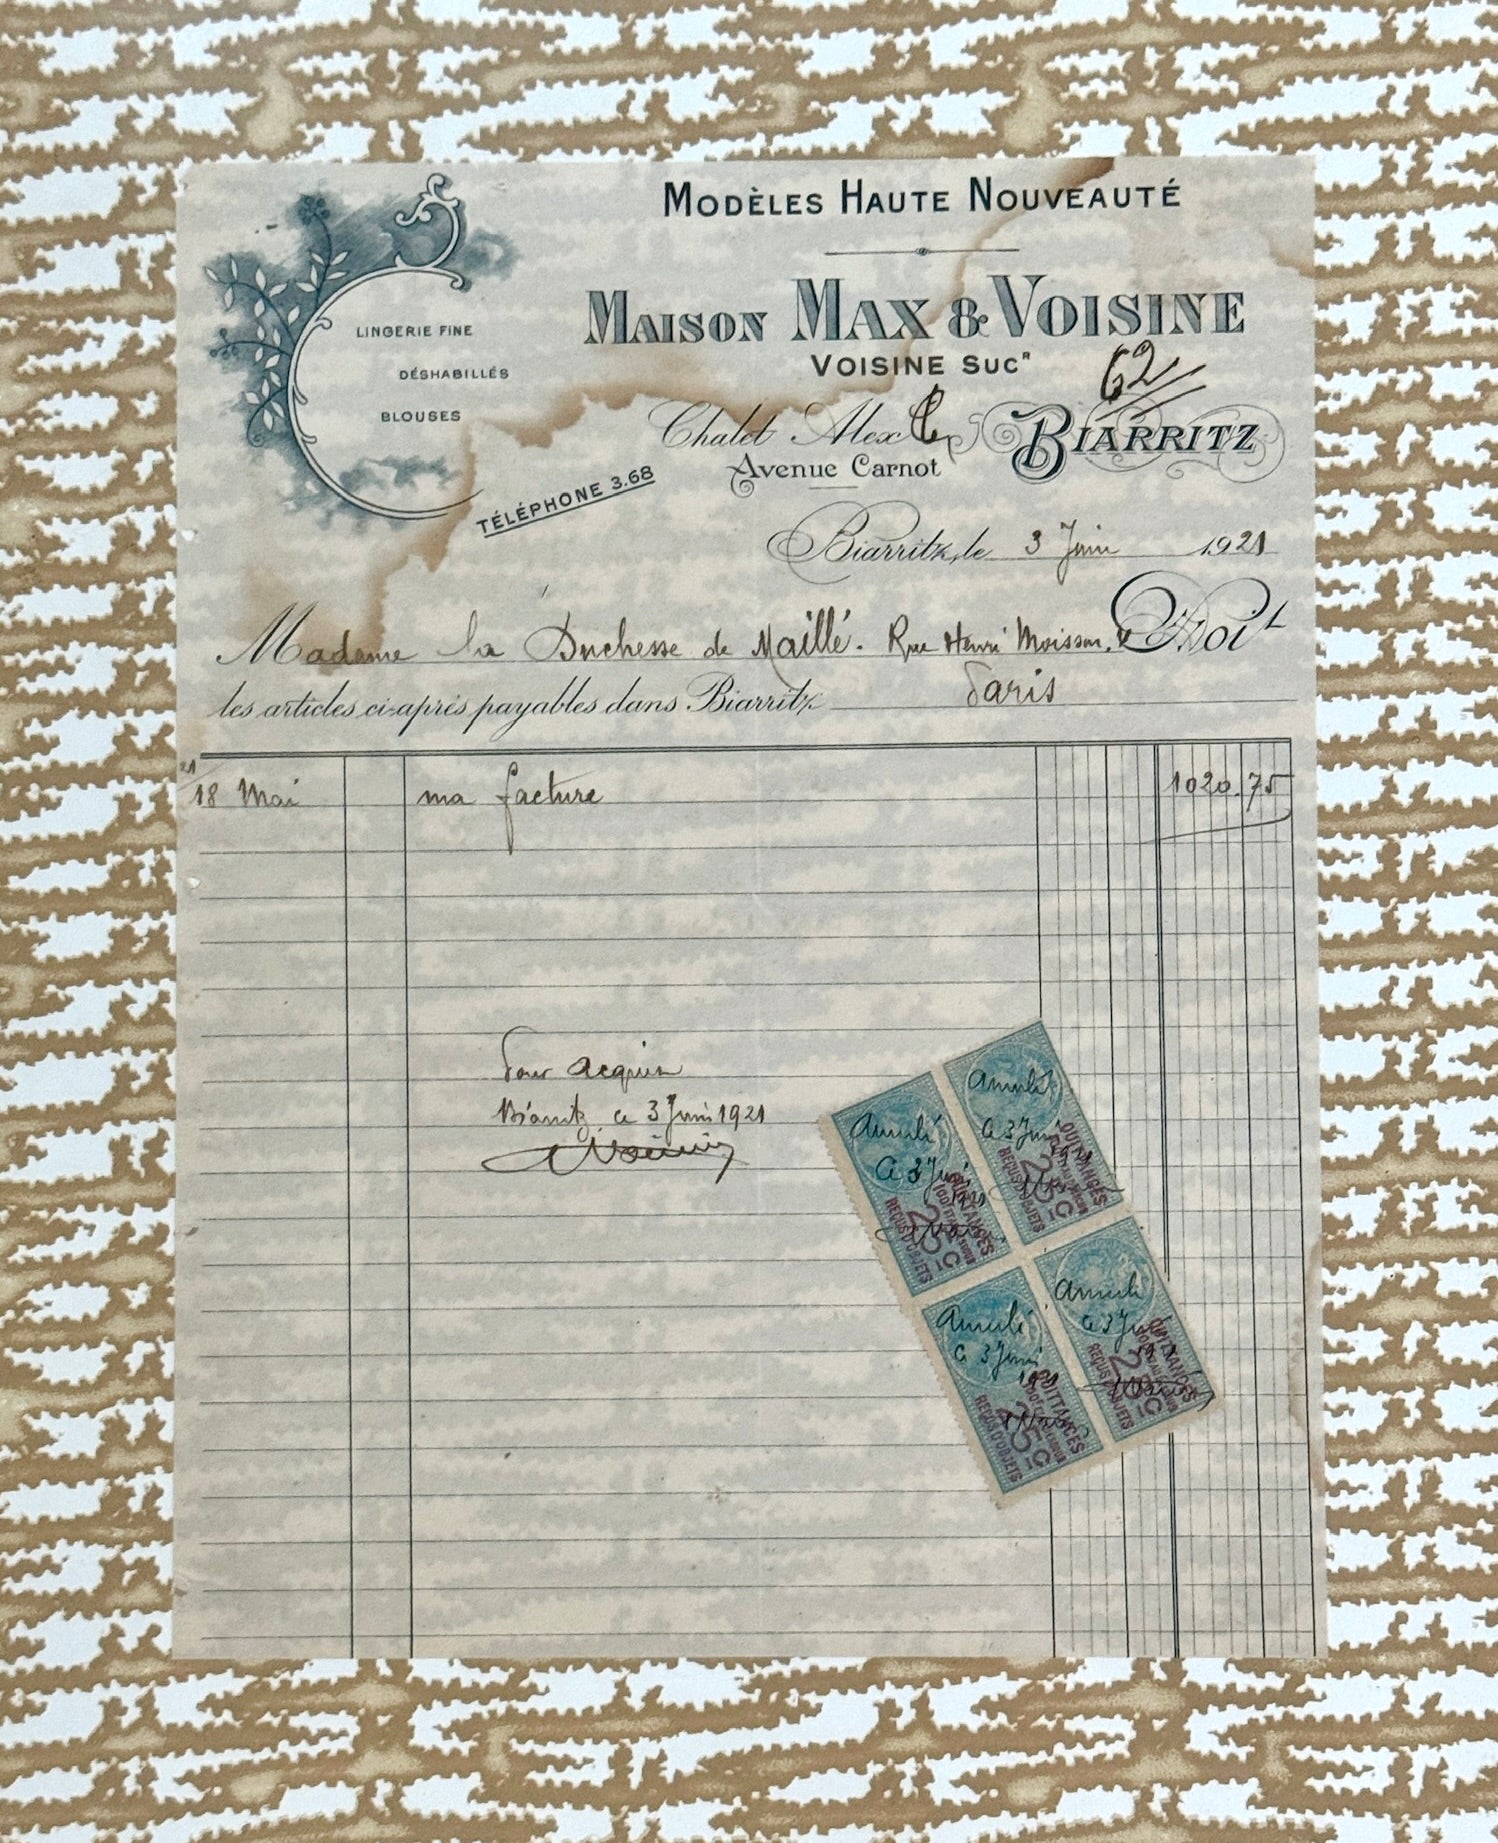 MODÈLES HAUTE NOUVEAUTÉ
MAISON MAX & VOISINE
VOISINE SUCR
62
LINGERIE FINE
DÉSHABILLÉS
BLOUSES
Chalet Alex
BIARRITZ
Avenue Carnot
TÉLÉPHONE 3.68
Biarritz, le 3 Juin 1921
Madame la Duchesse de Maillé. Rue Henri Moissan. Doit
les articles ci-après payables dans Biarritz Paris
21
18 Mai ma facture 1020.75
Pour acquit
Biarritz, ce 3 Juin 1921
Voisine
Annulé
ce 3 Juin
1921
QUITTANCES
25c
REÇUS D'OBJETS
Annulé
ce 3 Juin
1921
QUITTANCES
25c
REÇUS D'OBJETS
Annulé
ce 3 Juin
QUITTANCES
25c
REÇUS D'OBJETS
Annulé
ce 3 Juin
1921
QUITTANCES
25c
REÇUS D'OBJETS